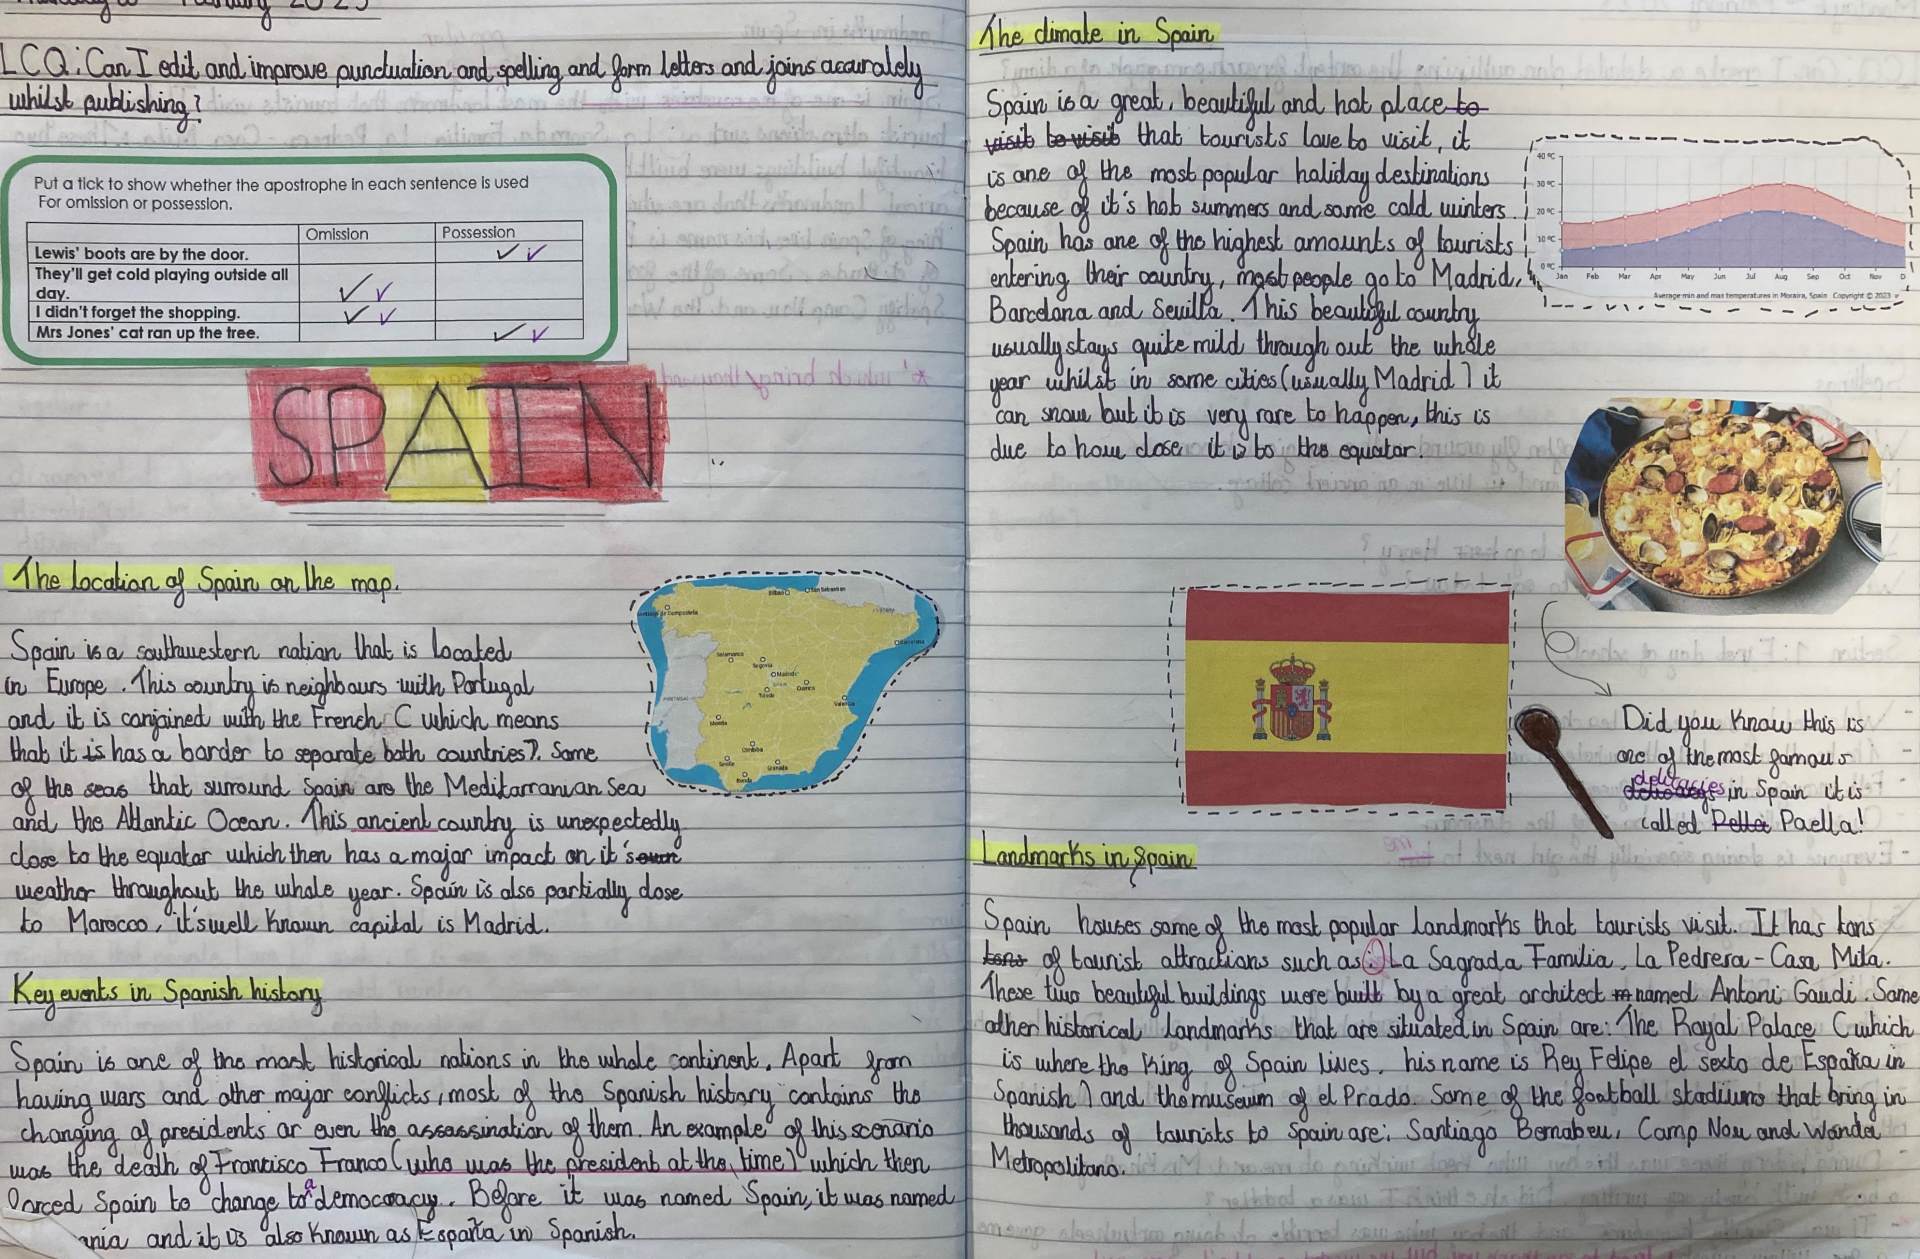 LCQ: Can I edit and improve punctuation and spelling and form letters and joins accurately
whilst publishing?
Put a tick to show whether the apostrophe in each sentence is used
For omission or possession.
Omission Possession
Lewis' boots are by the door.
They'll get cold playing outside all
day.
I didn't forget the shopping.
Mrs Jones' cat ran up the tree.
SPAIN
The location of Spain on the map.
Spain is a southwestern nation that is located
in Europe. This country is neighbours with Portugal
and it is conjoined with the French (which means
that it is has a border to separate both countries). Some
of the seas that surround Spain are the Meditarranian Sea
and the Atlantic Ocean. This ancient country is unexpectedly
close to the equator which then has a major impact on it's own
weather throughout the whole year. Spain is also partially close
to Morocco, it's well known capital is Madrid.
Bilbao
San Sebastian
Santiago de Compostela
Barcelona
Salamanca
Segovia
Madrid
Toledo
Cuenca
Valencia
PORTUGAL
Merida
Córdoba
Seville
Granada
Ronda
Key events in Spanish history
Spain is one of the most historical nations in the whole continent. Apart from
having wars and other major conflicts, most of the Spanish history contains the
changing of presidents or even the assassination of them. An example of this scenario
was the death of Francisco Franco (who was the president at the time) which then
forced Spain to change to a democracy. Before it was named Spain, it was named
ania and it is also known as España in Spanish.
The climate in Spain
Spain is a great, beautiful and hot place to
visit to visit that tourists love to visit, it
is one of the most popular holiday destinations
because of it's hot summers and some cold winters.
Spain has one of the highest amounts of tourists
entering their country, most people go to Madrid,
Barcelona and Sevilla. This beautiful country
usually stays quite mild through out the whole
year whilst in some cities (usually Madrid) it
can snow but it is very rare to happen, this is
due to how close it is to the equator.
40 ºC
30 ºC
20 ºC
10 ºC
0 ºC
Jan Feb Mar Apr May Jun Jul Aug Sep Oct Nov D
Average min and max temperatures in Moraira, Spain Copyright © 2023
Did you know this is
one of the most famous
delicacies in Spain it is
called Paella!
Landmarks in Spain
Spain houses some of the most popular landmarks that tourists visit. It has tons
tons of tourist attractions such as: La Sagrada Familia, La Pedrera - Casa Mila.
These two beautiful buildings were built by a great architect named Antoni Gaudi. Some
other historical landmarks that are situated in Spain are: The Royal Palace (which
is where the King of Spain lives, his name is Rey Felipe el sexto de España in
Spanish) and the museum of el Prado. Some of the football stadiums that bring in
thousands of tourists to Spain are: Santiago Bernabeu, Camp Nou and Wanda
Metropolitano.